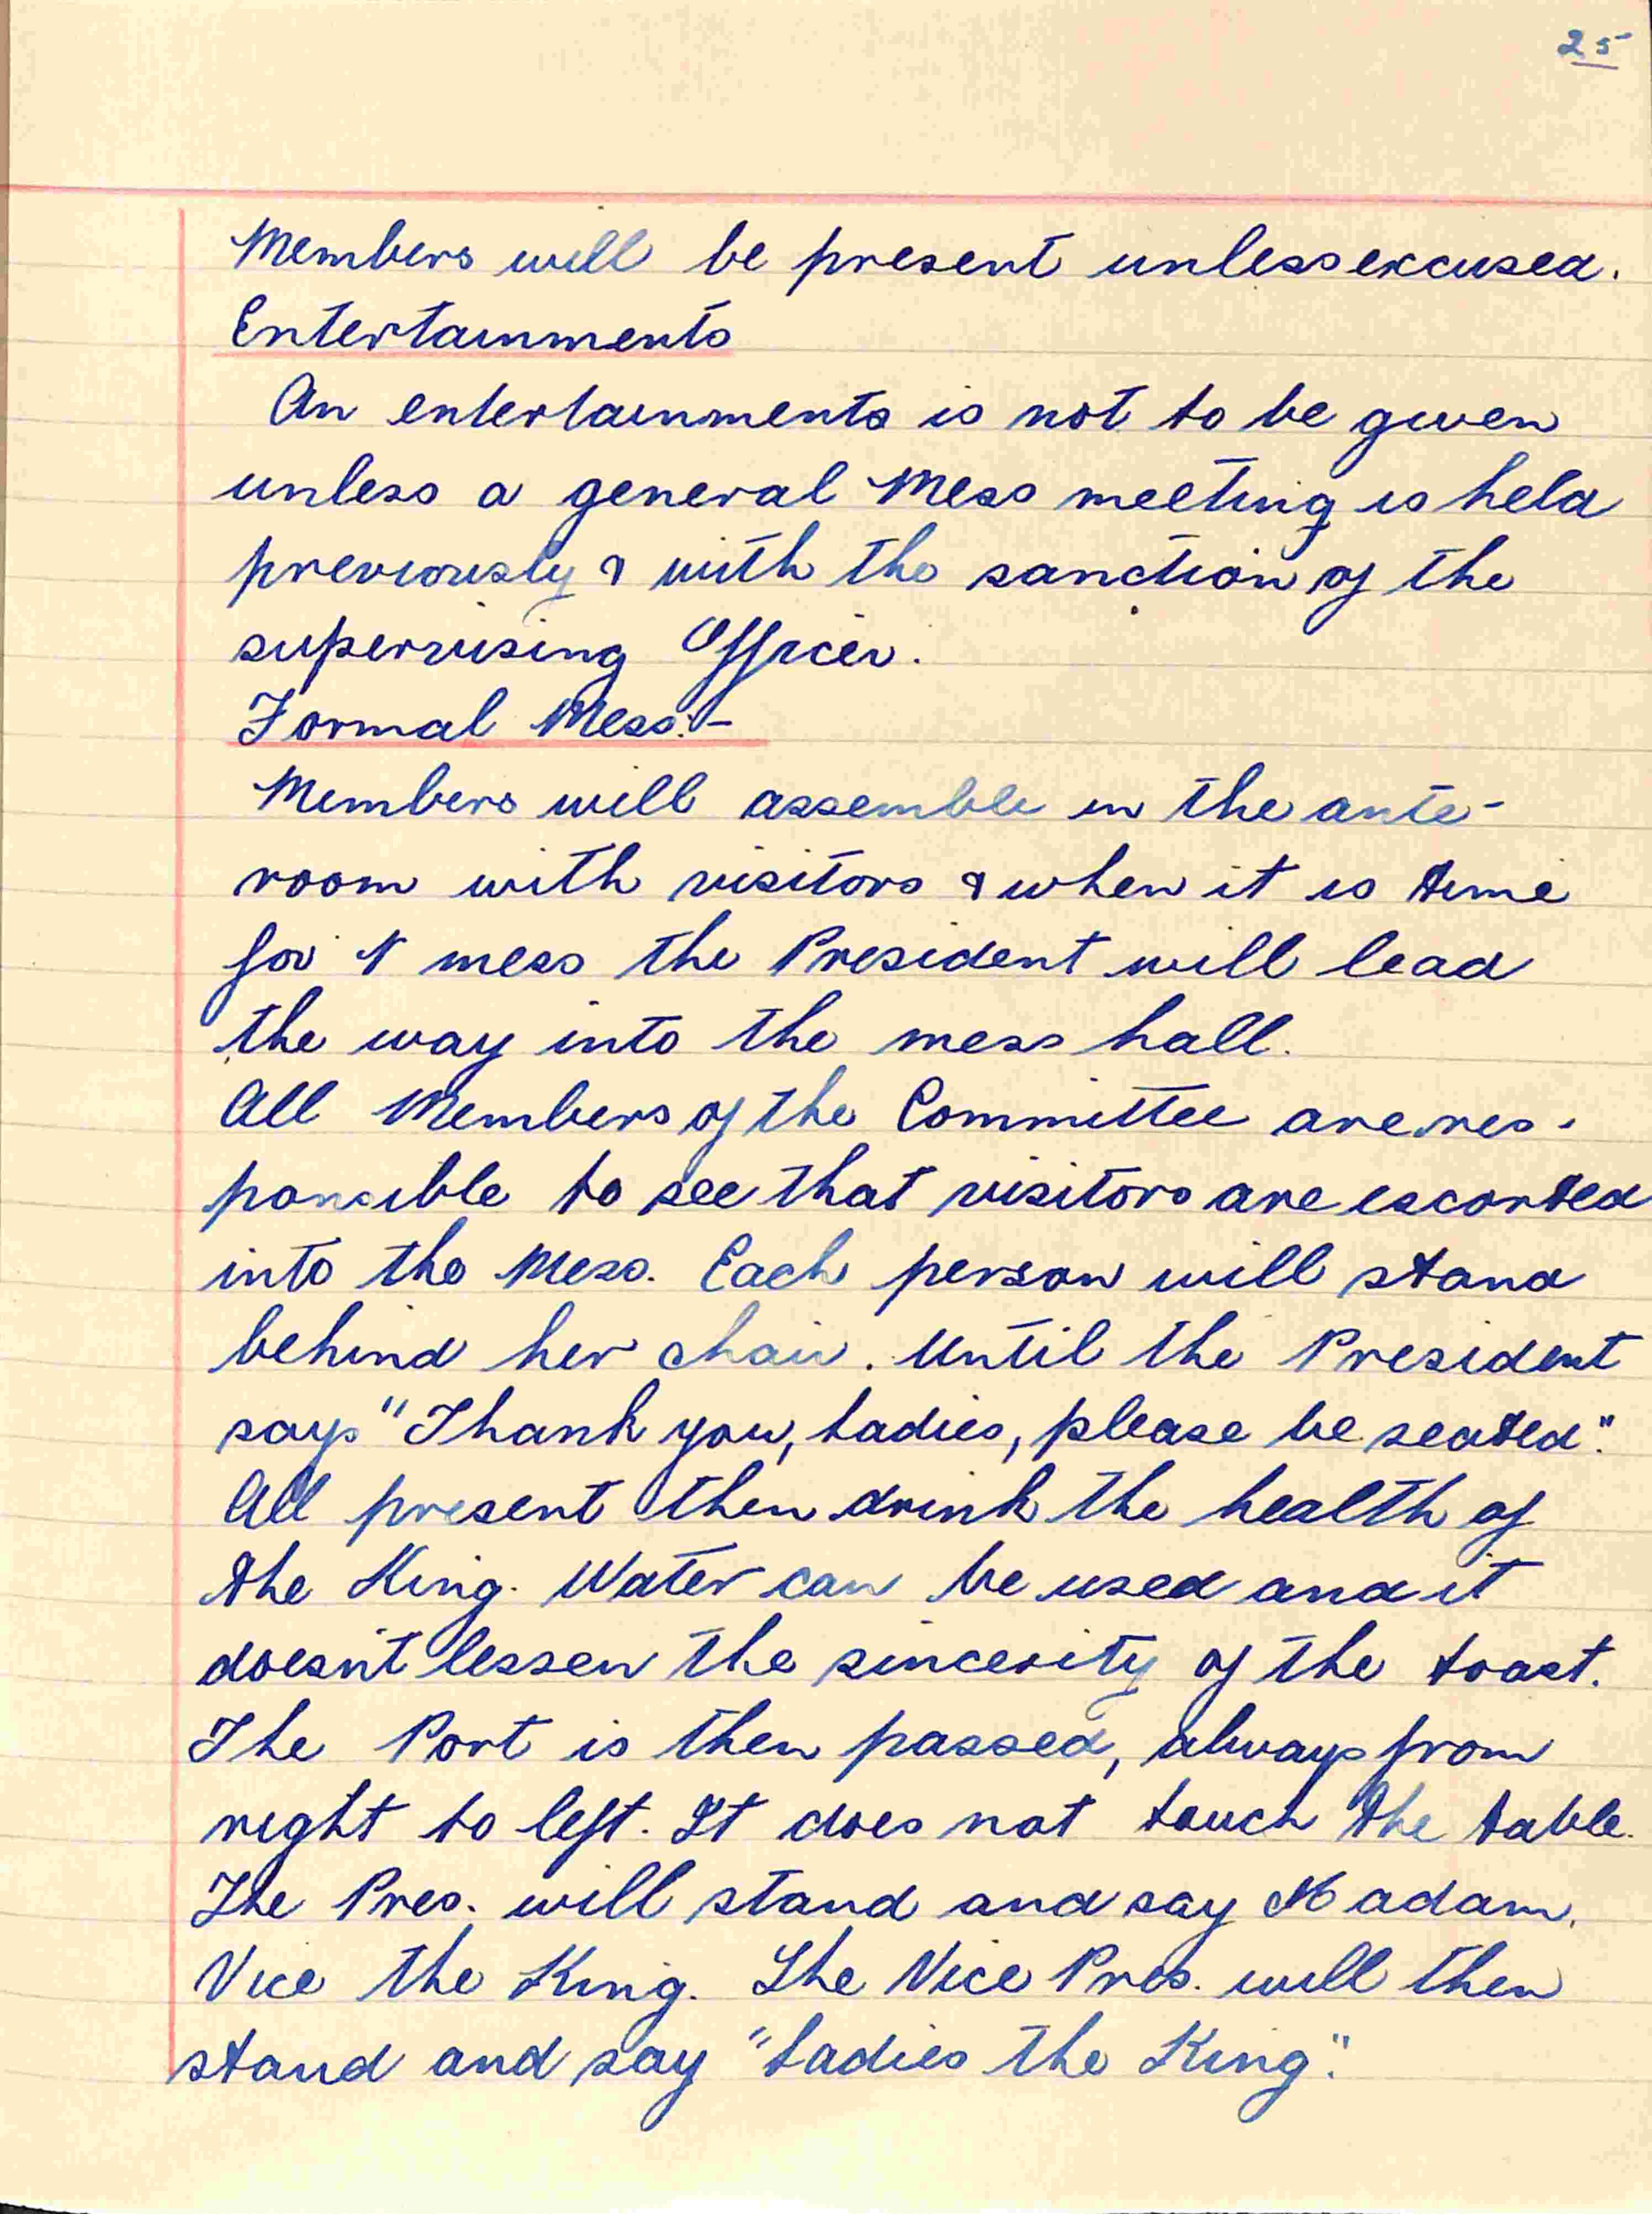 25
Members will be present unless excused.
Entertainments
An entertainments is not to be given
unless a general Mess meeting is held
previously & with the sanction of the
supervising Officer.
Formal Mess:-
Members will assemble in the ante-
room with visitors & when it is time
for mess the President will lead
the way into the mess hall.
All Members of the Committee are res-
ponsible to see that visitors are escorted
into the Mess. Each person will stand
behind her chair. Until the President
says "Thank you, Ladies, please be seated".
All present then drink the health of
the King. Water can be used and it
doesn't lessen the sincerity of the toast.
The Port is then passed, always from
right to left. It does not touch the table.
The Pres. will stand and say Madam.
Vice the King. The Vice Pres. will then
stand and say "Ladies the King".